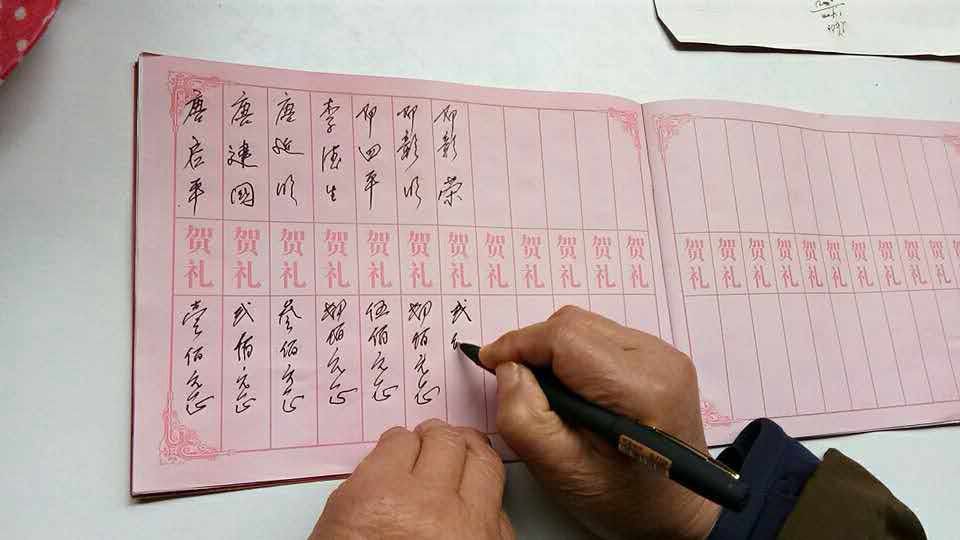 唐启平
唐建国
唐延明
李德生
四平
彭明
彭荣
贺礼
贺礼
贺礼
贺礼
贺礼
贺礼
贺礼
贺礼
贺礼
贺礼
贺礼
壹佰元正
贰佰元正
叁佰元正
肆佰元正
伍佰元正
肆佰元正
贰
贺礼
贺礼
贺礼
贺礼
贺礼
贺礼
贺礼
贺礼